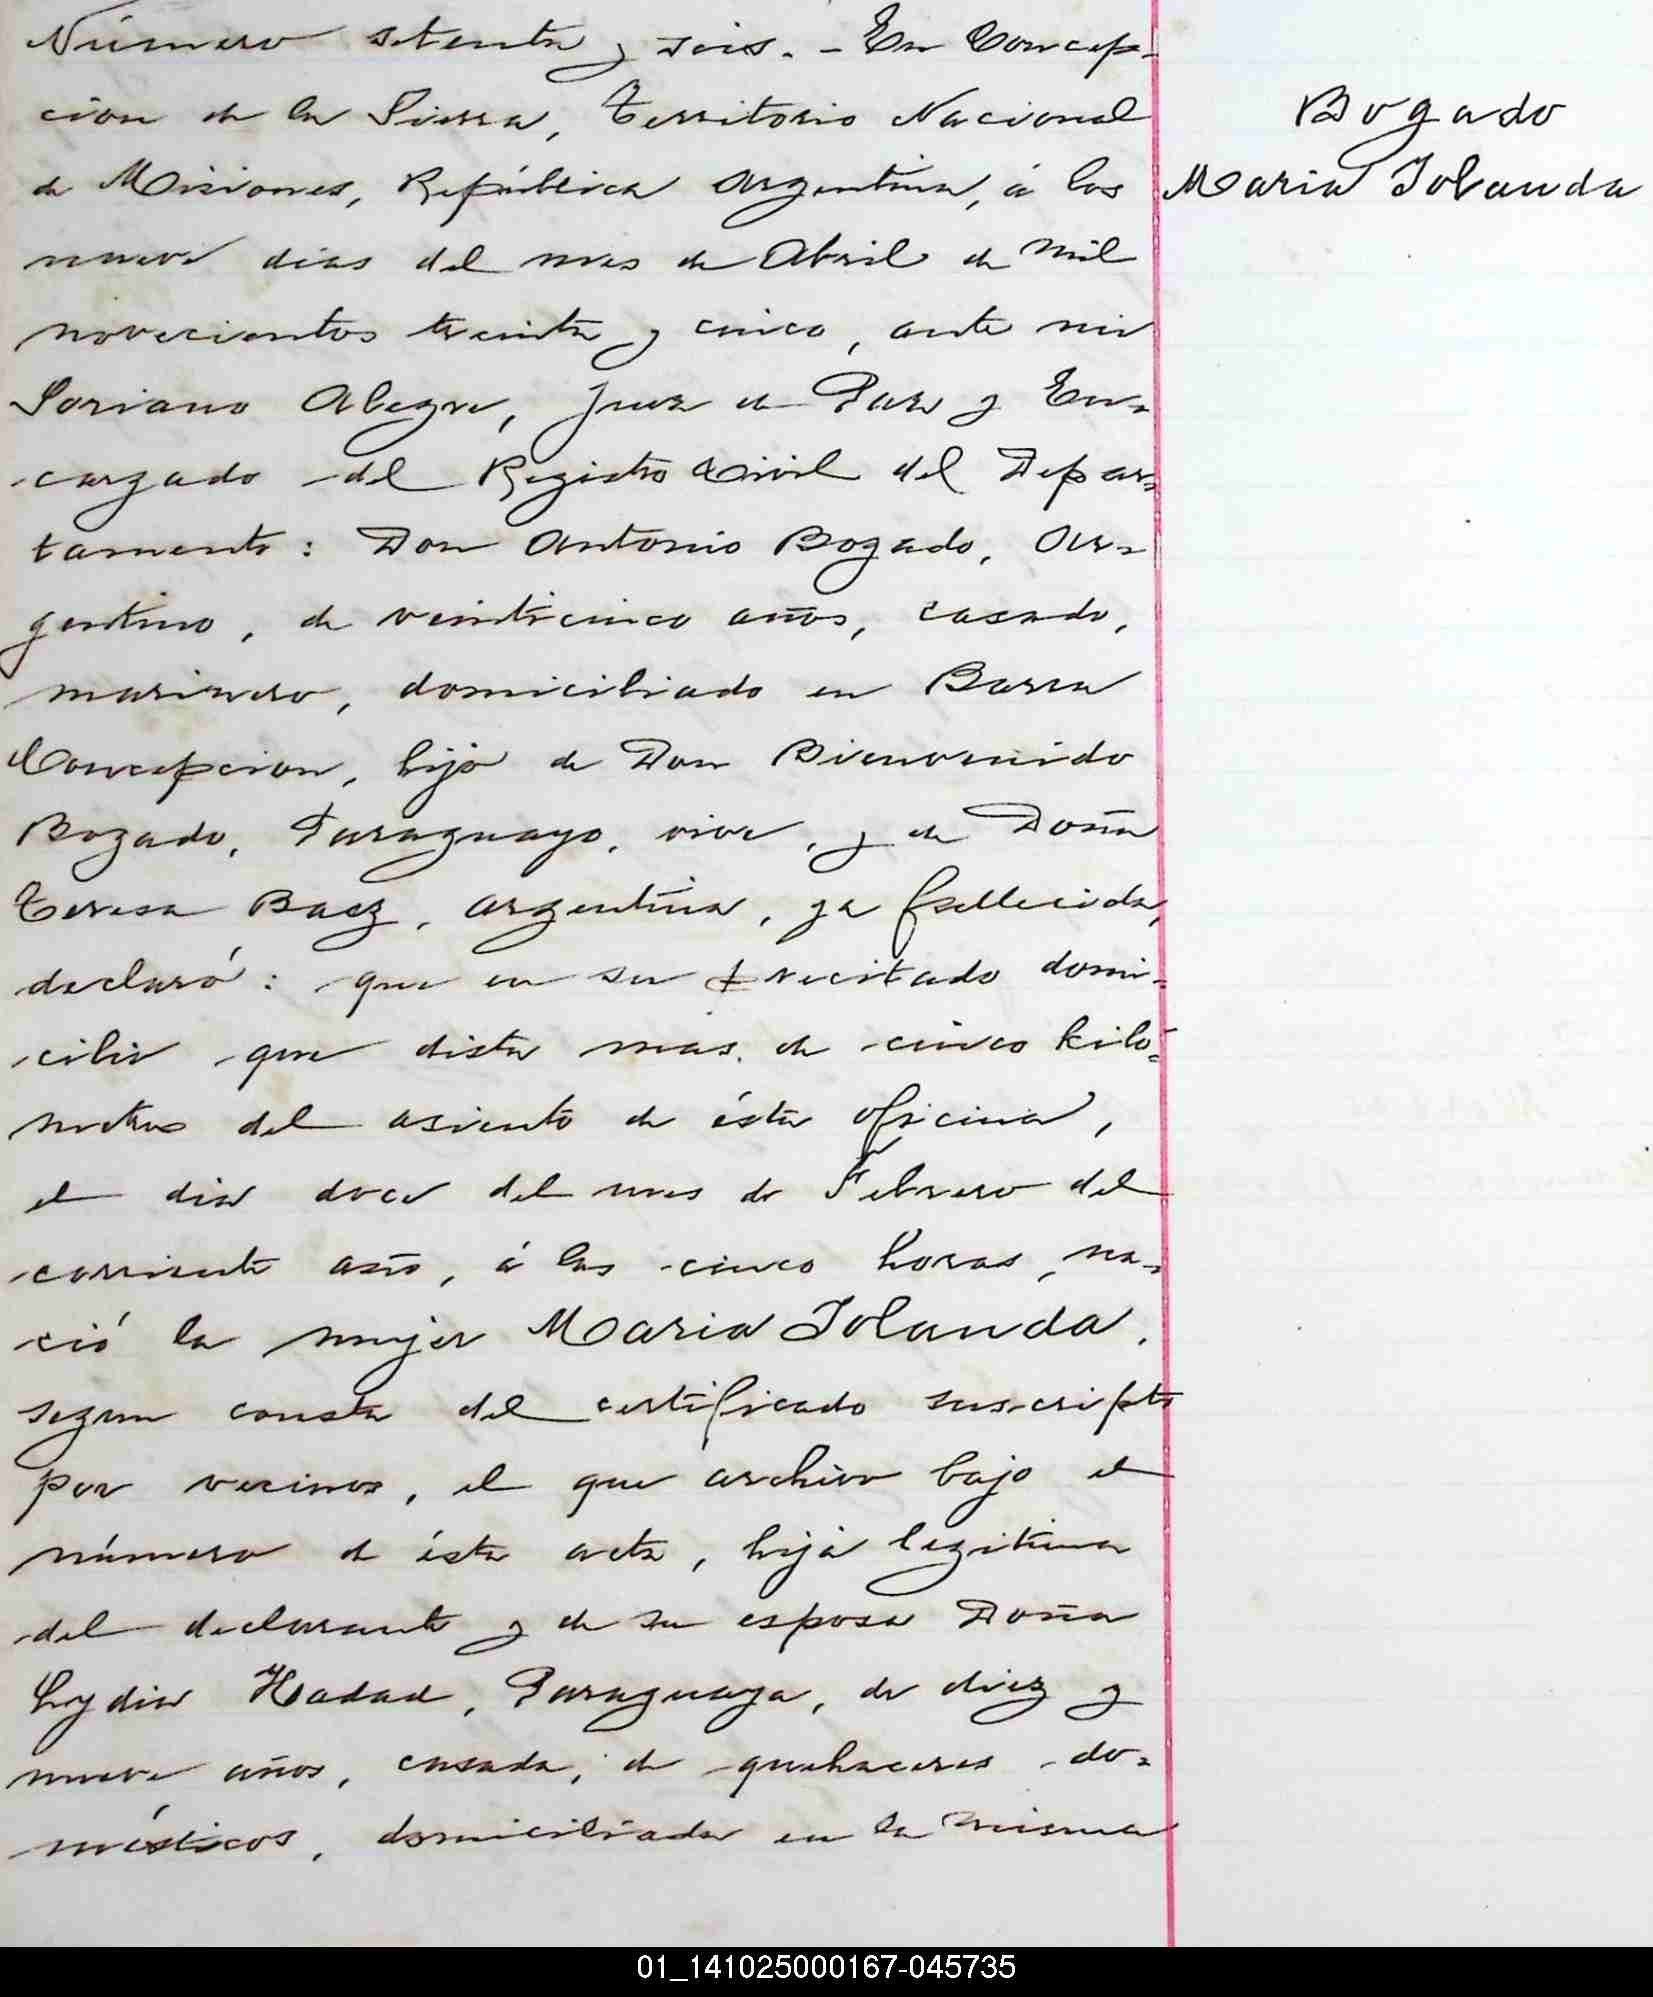 Número setenta y seis. - En Concep-
cion de la Sierra, Territorio Nacional
de Misiones, República Argentina, á los
nueve dias del mes de Abril de mil
novecientos treinta y cinco, ante mi
Soriano Alegre, Juez de Paz y En-
cargado del Registro Civil del Depar-
tamento: Don Antonio Bogado, Ar-
gentino, de veinticinco años, casado,
marinero, domiciliado en Barra
Concepcion, hijo de Don Bienvenido
Bogado, Paraguayo, vive, y de Doña
Teresa Baez, argentina, ya fallecida,
declaró: que en su precitado domi-
cilio que dista mas de cinco kiló-
metros del asiento de ésta oficina,
el dia doce del mes de Febrero del
corriente año, á las cinco horas, na-
ció la mujer Maria Iolanda,
segun consta del certificado suscripto
por vecinos, el que archivo bajo el
número de ésta acta, hija legitima
del declarante y de su esposa Doña
Lydia Hadad, Paraguaya, de diez y
nueve años, casada, de quehaceres do-
mésticos, domiciliada en la misma
Bogado
Maria Iolanda
01_141025000167-045735